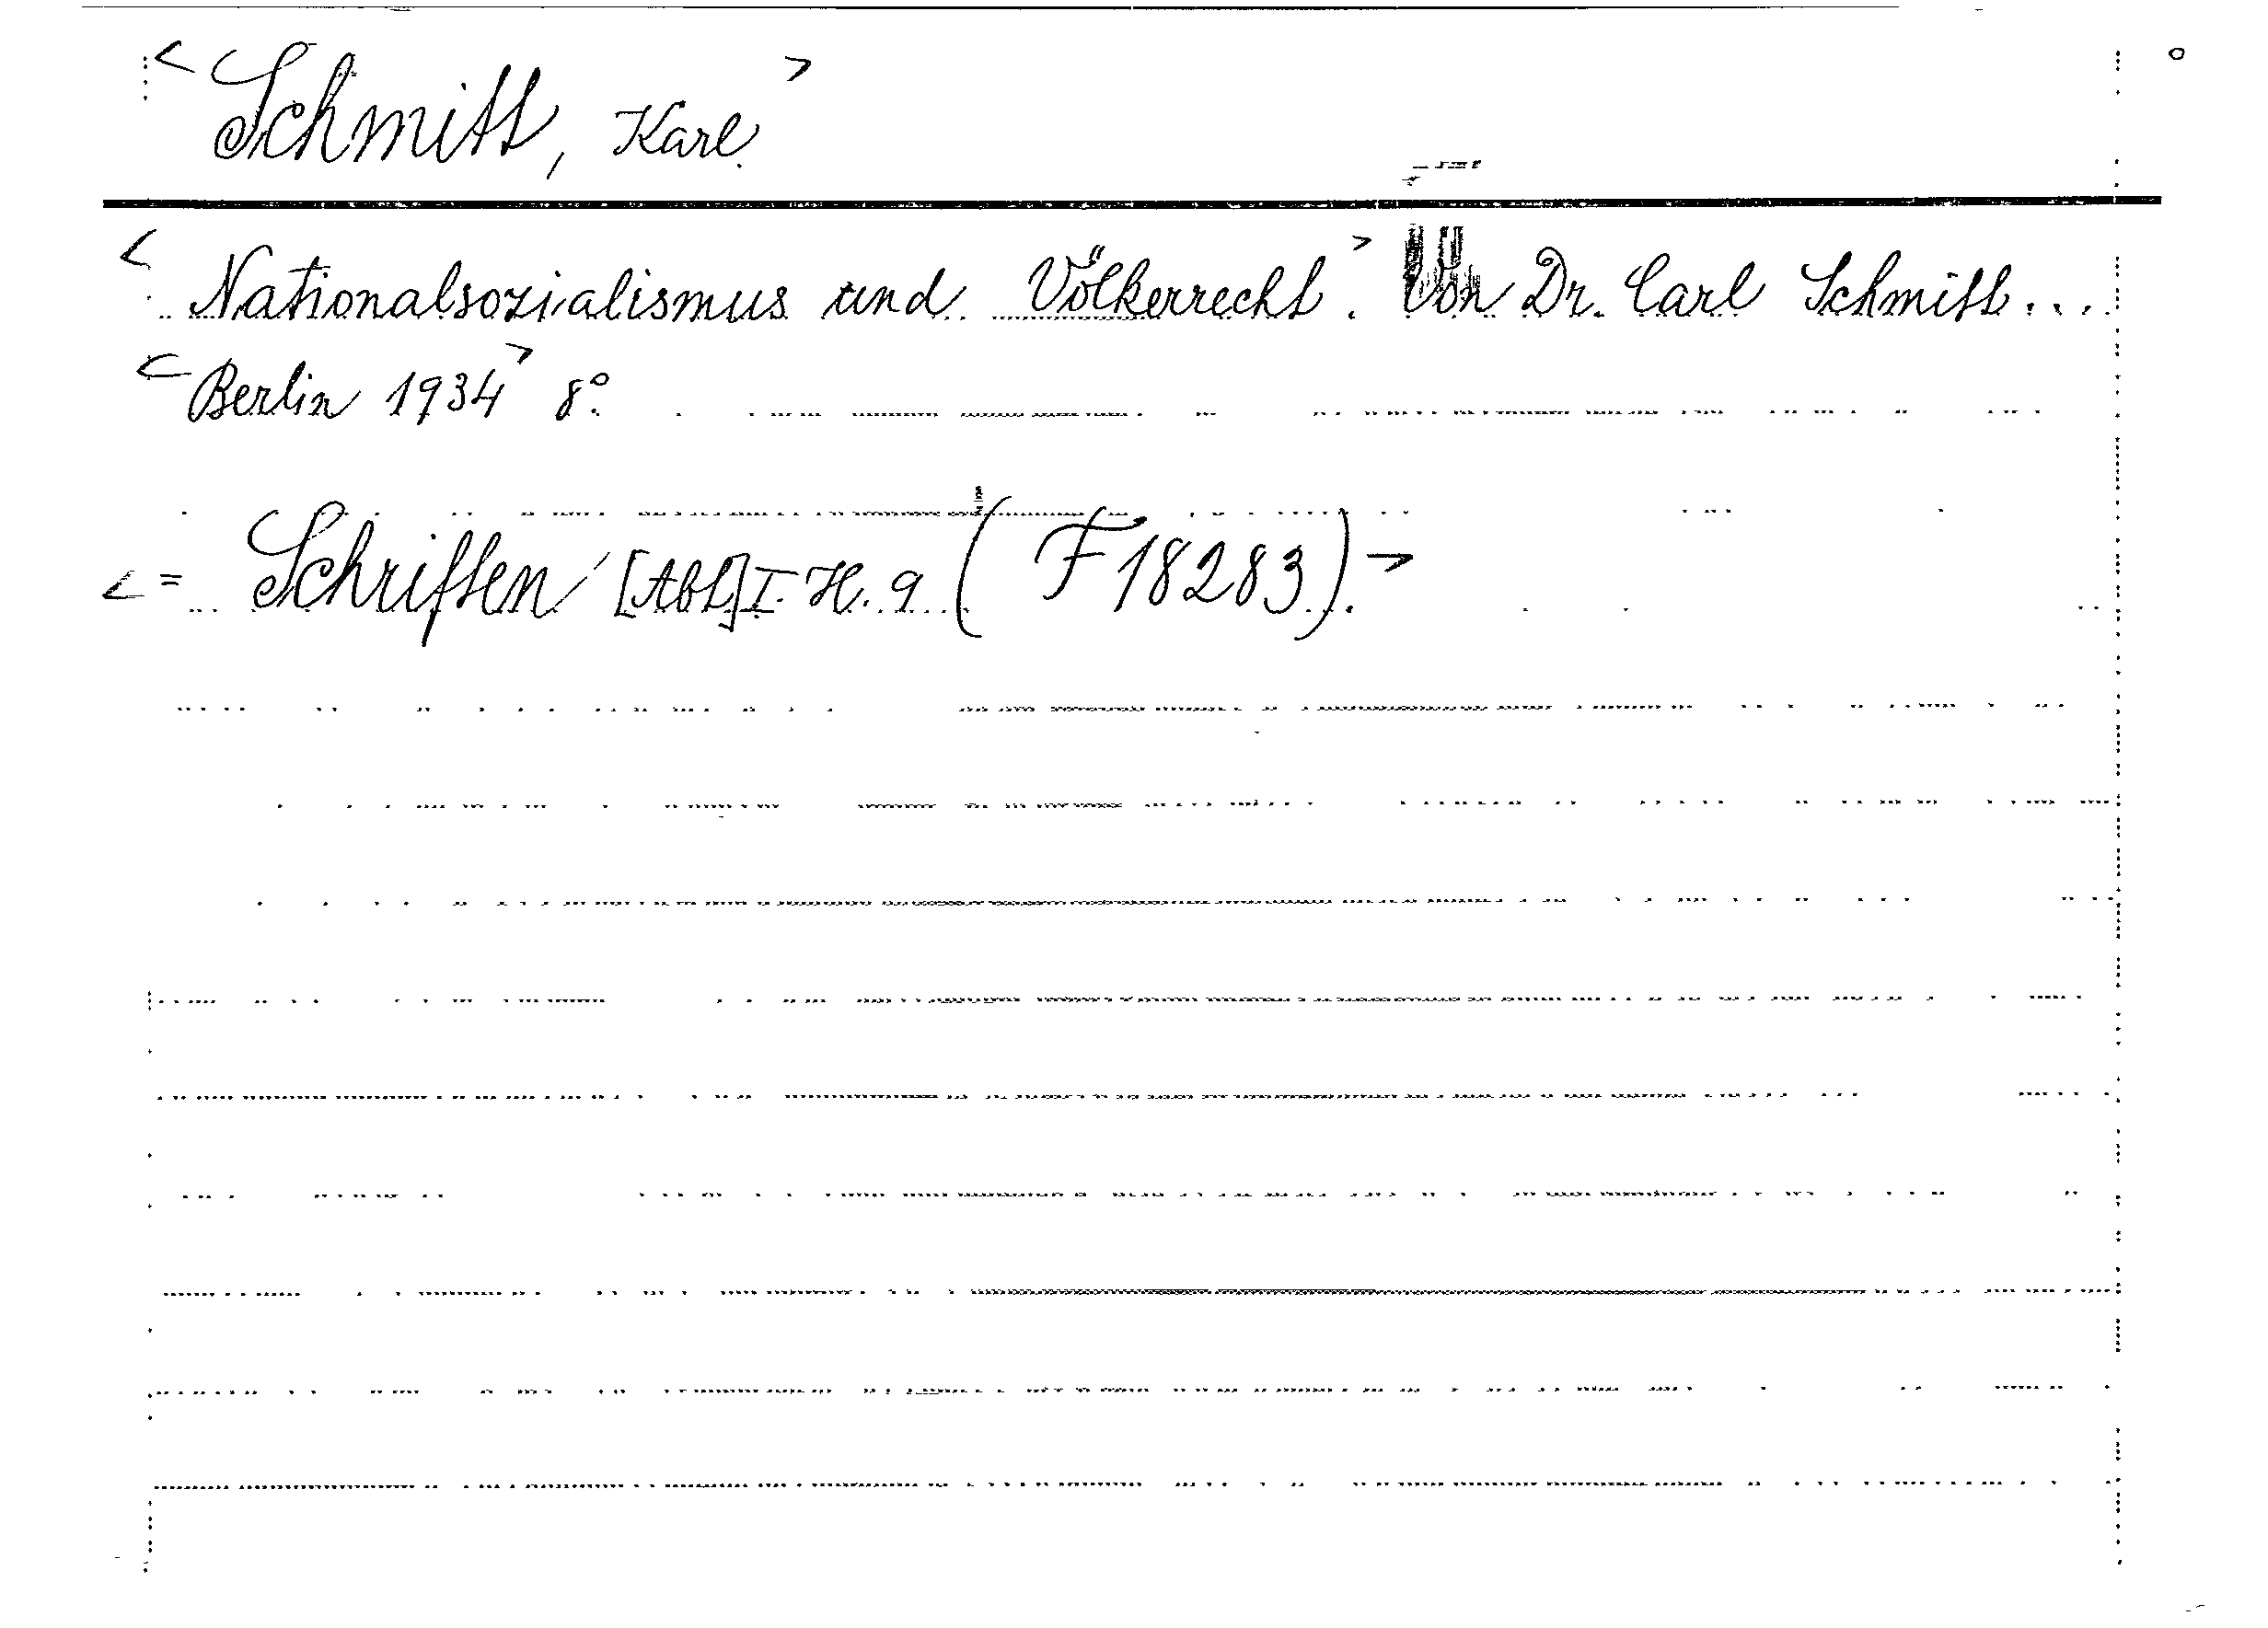 < Schmitt, Karl. >
< Nationalsozialismus und Völkerrecht. > Von Dr. Carl Schmitt...
< Berlin 1934 > 8°.
< = Schriften [Abt.] I. H. 9 (F 18283). >